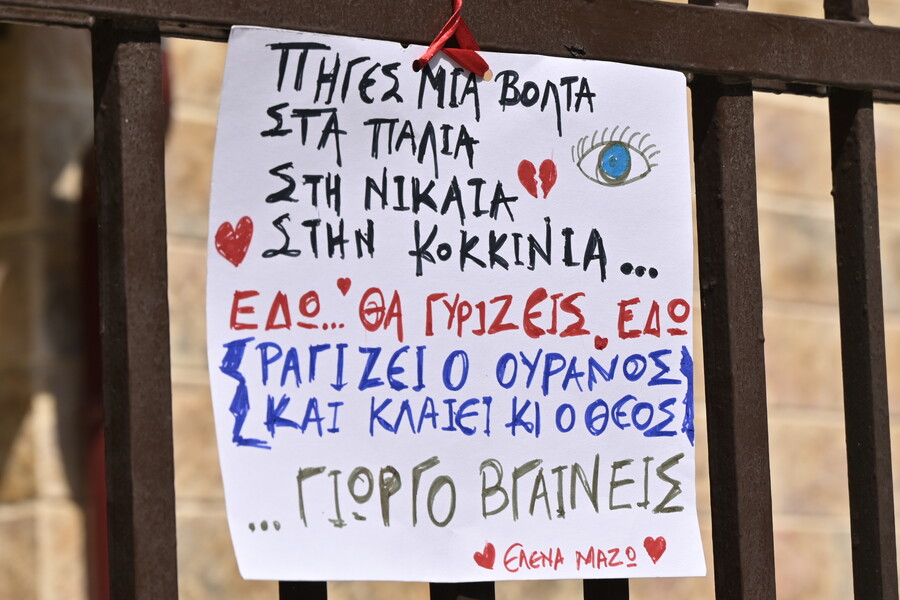 ΠΗΓΕΣ ΜΙΑ ΒΟΛΤΑ
ΣΤΑ ΠΑΛΙΑ
ΣΤΗ ΝΙΚΑΙΑ
ΣΤΗΝ ΚΟΚΚΙΝΙΑ...
ΕΔΩ... ΘΑ ΓΥΡΙΖΕΙΣ ΕΔΩ
{ΡΑΓΙΖΕΙ Ο ΟΥΡΑΝΟΣ
ΚΑΙ ΚΛΑΙΕΙ ΚΙ Ο ΘΕΟΣ}
...ΓΙΩΡΓΟ ΒΓΑΙΝΕΙΣ
ΕΛΕΝΑ ΜΑΖΩ